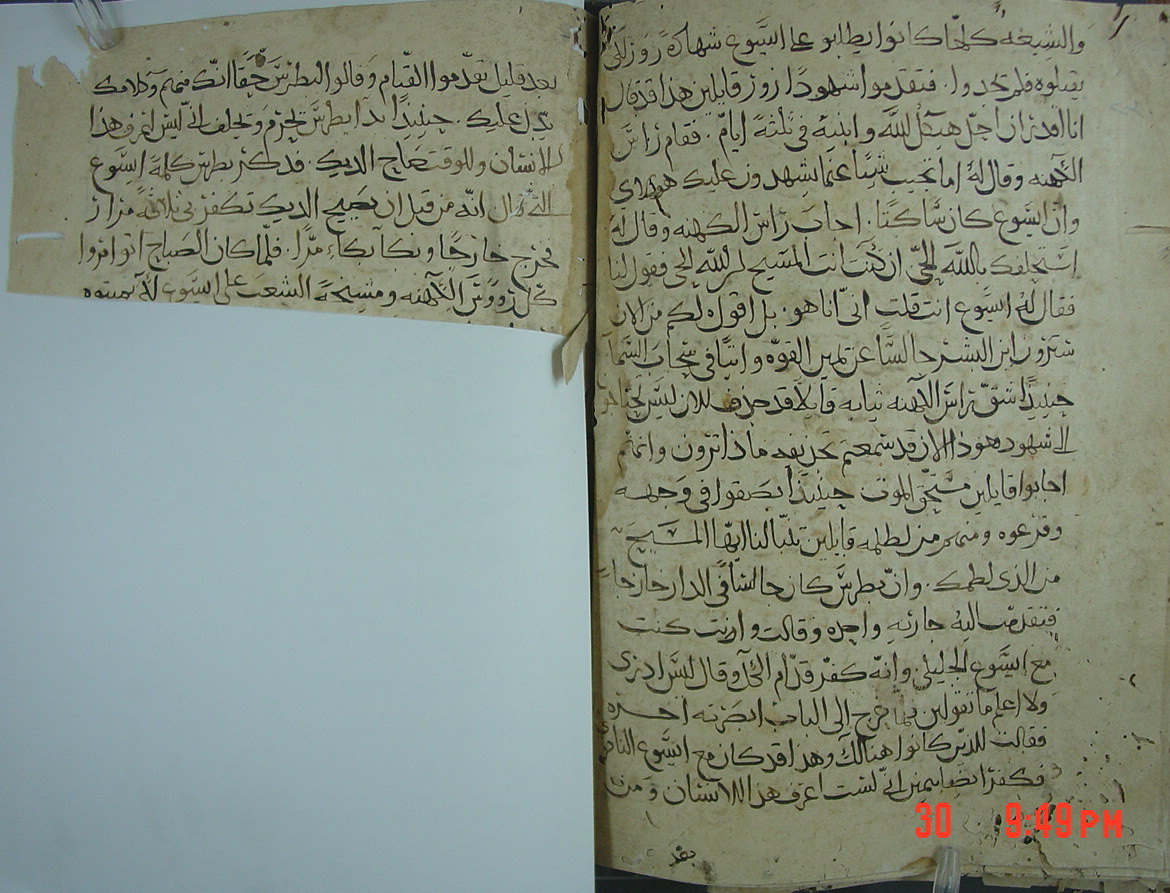 والشيعه كلها كانوا يطلبو على اسيوع شهادة زور لكي
يقتلوه فلم يجدوا. فتقدموا شهودًا زور قايلين هذا قد قال
انا اقدر ان احل هيكل الله وابنيه في ثلثة ايام. فقام راس
الكهنه وقال له اما تجيب شيئًا عما يشهدون عليك هولاى
وان ايسوع كان ساكتًا. اجاب راس الكهنه وقال له
استحلفك بالله الحي ان كنت انت المسيح ابن لله الحي فقول لنا
فقال له ايسوع انت قلت اني انا هو. بل اقول لكم من الان
سترون ابن البشر جالسًا عن يمين القوه واتيًا في سحاب السما
حينيذًا شق راس الكهنه ثيابه قايلا قد جدف الان ليس نحتاجو
الى شهود هوذا الان قد سمعتم تجديفه ماذا ترون وانهم
اجابوا قايلين مستحق الموت حينيذًا بصقوا في وجهه
وقرعوه ومنهم من لطمه قايلين تنبا لنا ايها المسيح
من الذي لطمك. وان بطرس كان جالسًا في الدار خارجا
فتقدمت اليه جاريه واحده وقالت وانت كنت
مع ايسوع الجليلي. وانه كفر قدام الكل وقال لس ادري
ولا اعلم ما تقولين خرج الى الباب ابصرته اخره
فقالت للذين كانوا هنالك وهذا قد كان مع ايسوع الناصري
فكفر ايضا بيمين اني لست اعرف هذا الانسان ومن
بعد
بعد قليل تقدموا القيام وقالوا لبطرس حقا انك منهم وكلامك
يدل عليك. حينيذًا بدا بطرس يحرم ويحلف اني لس اعرف هذا
الانسان وللوقت صاح الديك. فدكر بطرس كلمة ايسوع
التي قال انه من قبل ان يصيح الديك تكفر بي ثلاثة مرار
فخرج خارجًا وبكا بكاء مرًا. فلما كان الصباح اتوامروا
كل رووس الكهنه ومشيخة الشعب على ايسوع لان يميتوه
30 9:49 PM